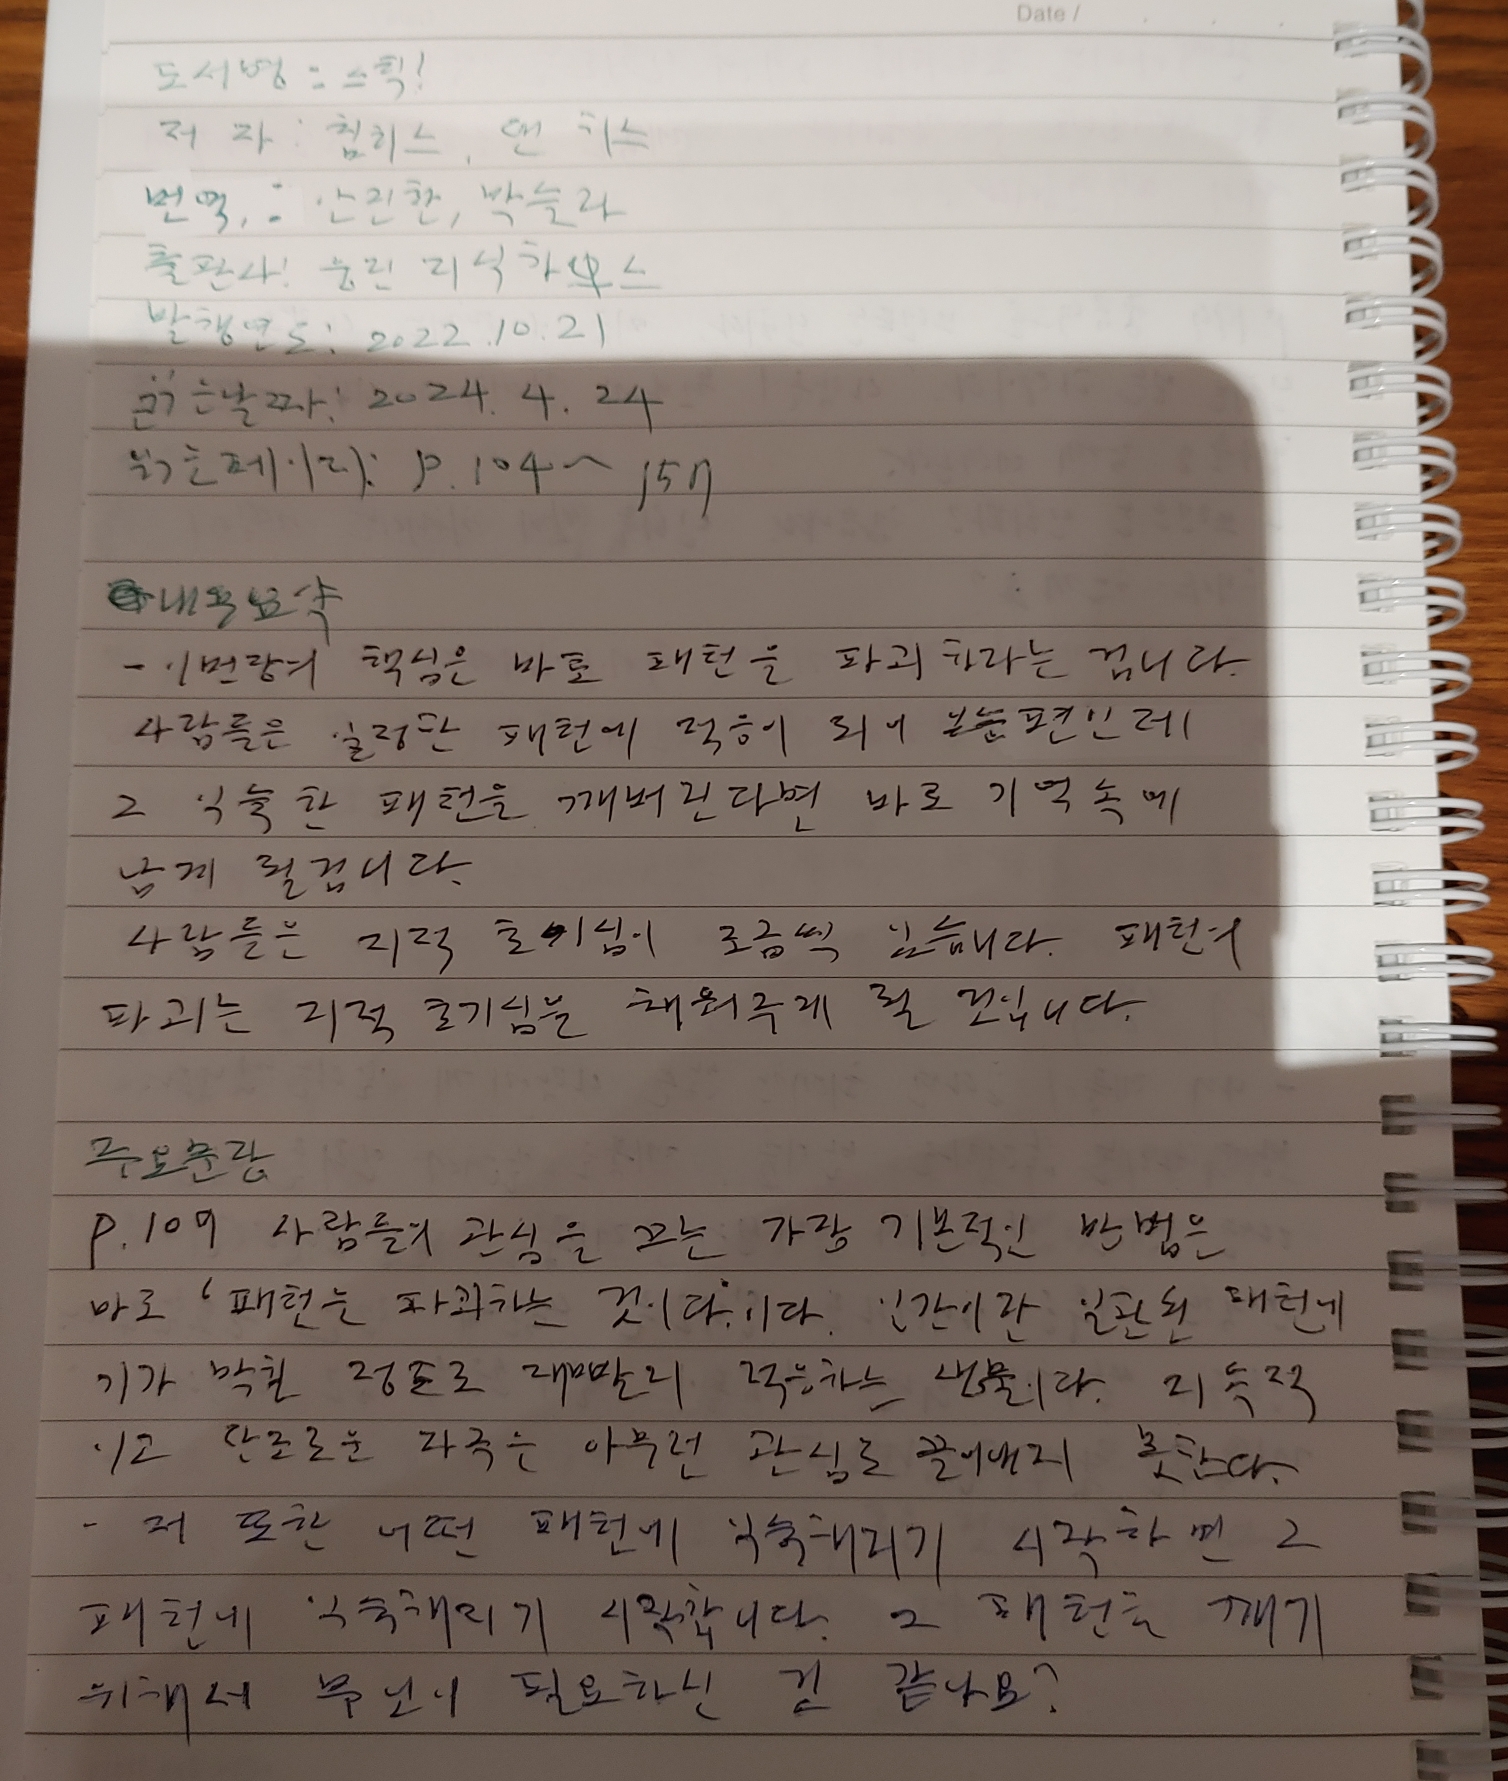 Date /
도서명 : 스틱!
저 자 : 칩히스, 댄 히스
번역, : 안진환, 박슬라
출판사: 웅진 지식하우스
발행연도: 2022.10.21
읽은날짜: 2024. 4. 24
읽은페이지: p.104~ 157
내용요약
- 이번장의 핵심은 바로 패턴을 파괴하라는 겁니다.
사람들은 일정한 패턴에 적응이 되어 보는편인데
그 익숙한 패턴을 깨버린다면 바로 기억속에
남게 될겁니다.
사람들은 지적 호기심이 조금씩 있습니다. 패턴의
파괴는 지적 호기심을 채워주게 될 것입니다.
주요문장
p.107 사람들의 관심을 끄는 가장 기본적인 방법은
바로 '패턴을 파괴하는 것이다.'이다. 인간이란 일관된 패턴에
기가 막힐 정도로 재빨리 적응하는 생물이다. 지속적
이고 단조로운 자극은 아무런 관심도 끌어내지 못한다.
- 저 또한 어떤 패턴에 익숙해지기 시작하면 그
패턴에 익숙해지기 시작합니다. 그 패턴을 깨기
위해서 무엇이 필요하신 것 같나요?